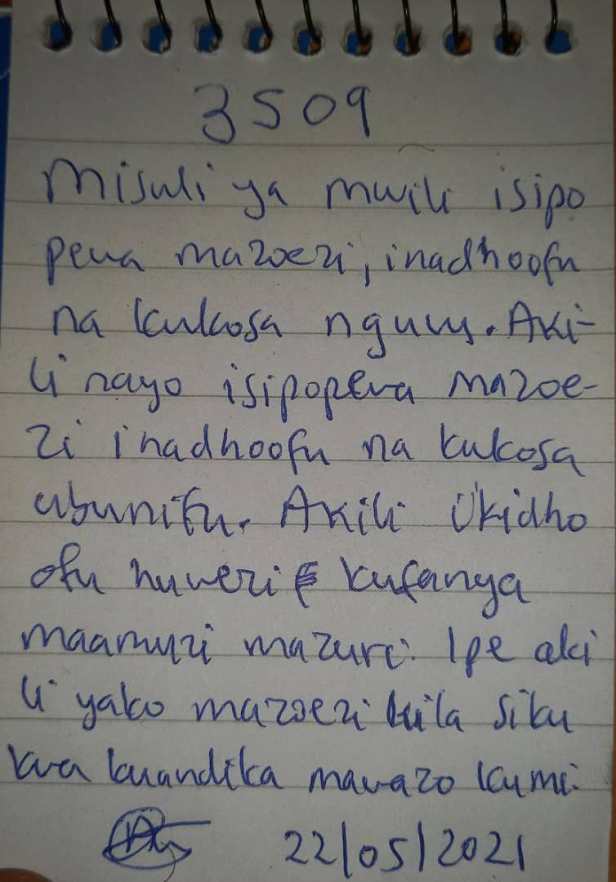 3509
Misuli ya mwili isipo
pewa mazoezi, inadhoofu
na kukosa nguvu. Aki-
li nayo isipopewa mazoe-
zi inadhoofu na kukosa
ubunifu. Akili ikidho
ofu huwezi kufanya
maamuzi mazuri. Ipe aki
li yako mazoezi kila siku
kwa kuandika mawazo kumi.
22/05/2021